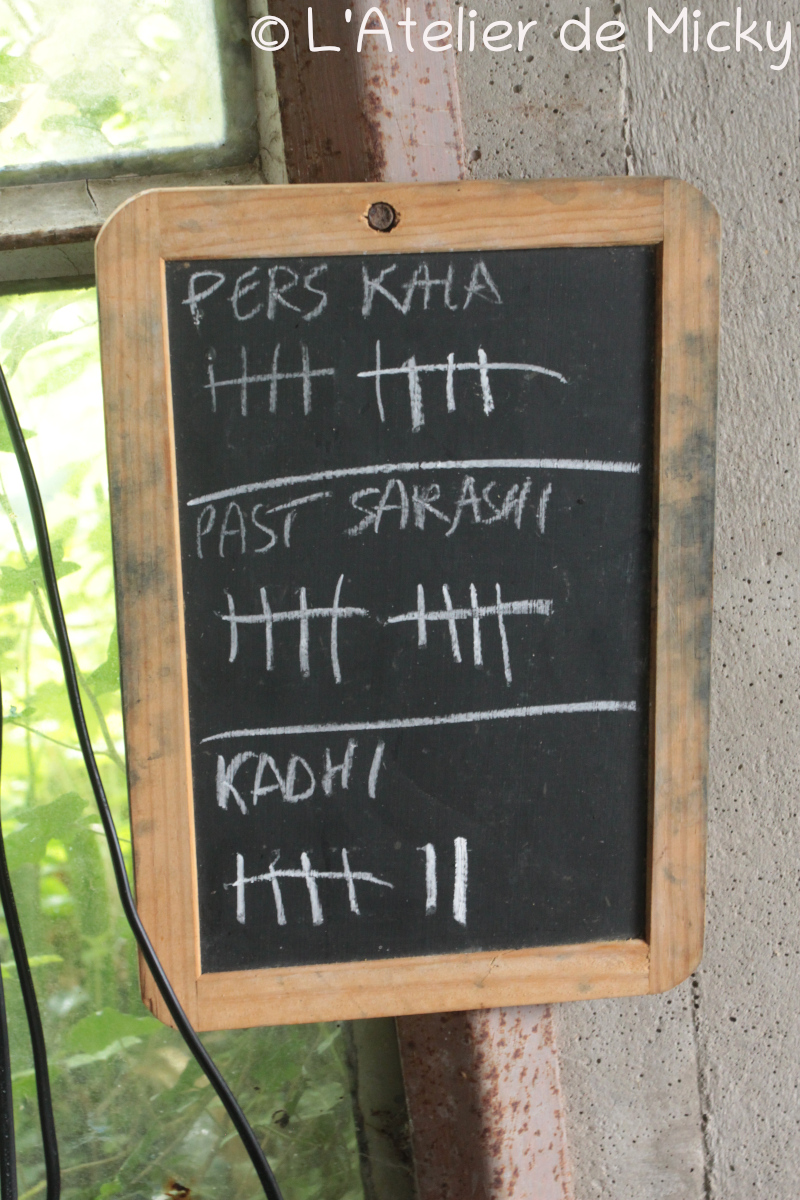 © L'Atelier de Micky
PERS KALA
PAST SARASHI
KADHI